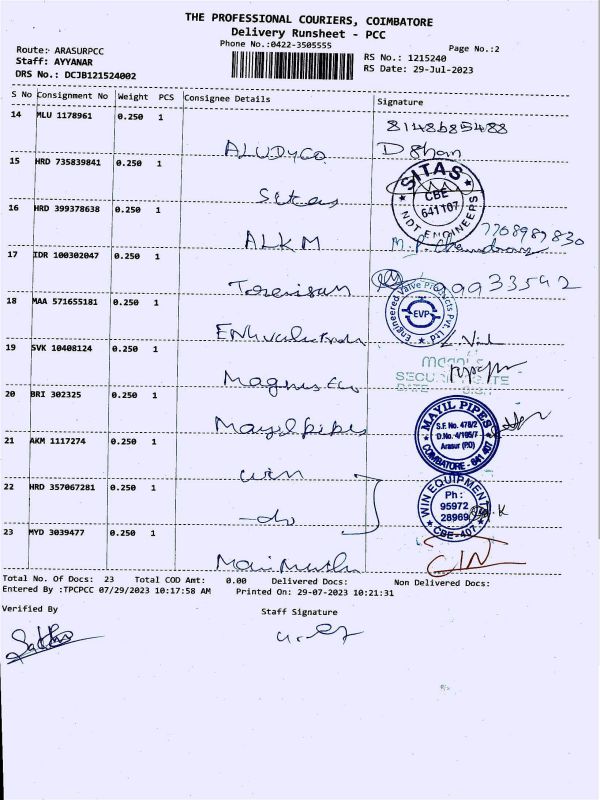 THE PROFESSIONAL COURIERS, COIMBATORE
Delivery Runsheet - PCC
Phone No.:0422-3505555
Page No.:2
Route: ARASURPCC
Staff: AYYANAR
DRS No.: DCJB121524002
RS No.: 1215240
RS Date: 29-Jul-2023
S No Consignment No Weight PCS Consignee Details Signature
14 MLU 1178961 0.250 1
8148685488
ALUDYCO
15 HRD 735839841 0.250 1
SITAS
CBE
641107
NDT ENGINEERS
16 HRD 399378638 0.250 1
ALKM
7708987830
17 IDR 100302047 0.250 1
Engineered Valve Products Pvt. Ltd
EVP
18 MAA 571655181 0.250 1
19 SVK 10408124 0.250 1
20 BRI 302325 0.250 1
Mayil pipes
MAYIL PIPES
S.F. No. 478/2
D.No. 4/195/7
Arasur (PO)
COIMBATORE - 641 407
21 AKM 1117274 0.250 1
win
22 HRD 357067281 0.250 1
-do
WIN EQUIPMENT
Ph :
95972
28969
CBE-407
23 MYD 3039477 0.250 1
Total No. Of Docs: 23 Total COD Amt: 0.00 Delivered Docs: Non Delivered Docs:
Entered By :TPCPCC 07/29/2023 10:17:58 AM Printed On: 29-07-2023 10:21:31
Verified By Staff Signature